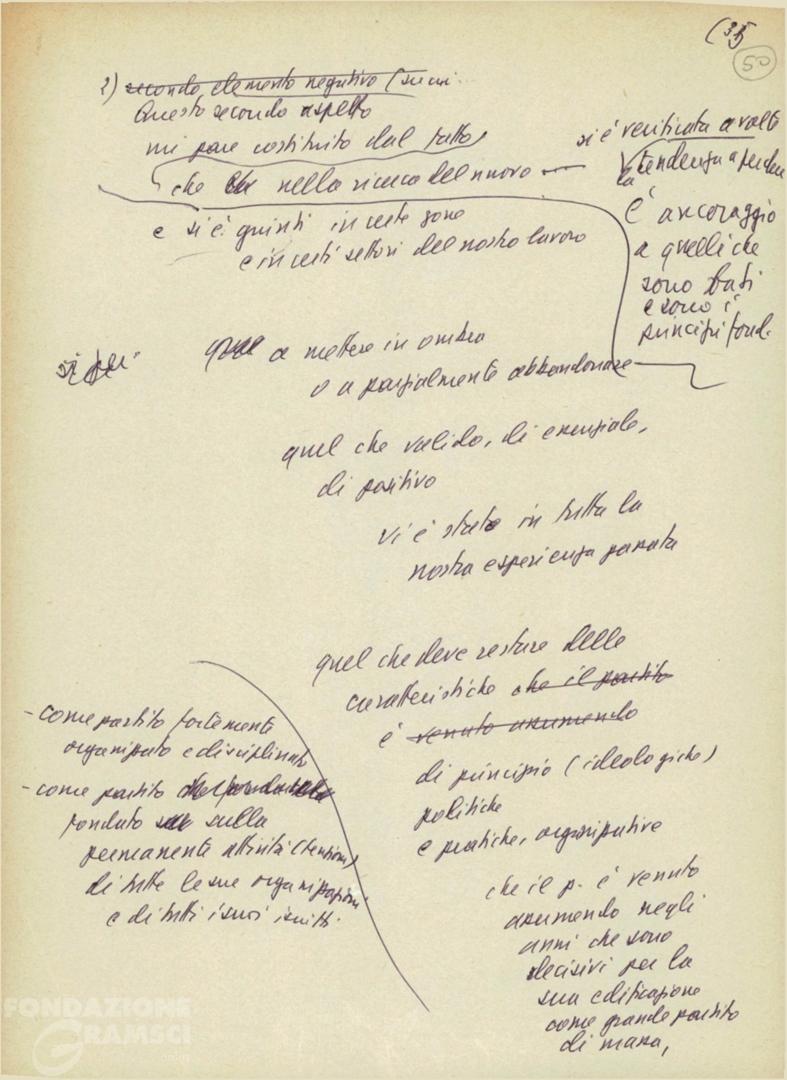 (35)
50
2) secondo elemento negativo (su cui
Questo secondo aspetto
mi pare costituito dal fatto
che nella ricerca del nuovo —
si è verificata a volte
la tendenza a perdere
è ancoraggio
a quelli che
sono basi
e sono i
principi fond.
e si è quindi in certe zone
e in certi settori del nostro lavoro
a mettere in ombra
o a parzialmente abbandonare
quel che valido, di essenziale,
di positivo
vi è stato in tutta la
nostra esperienza passata
quel che deve restare delle
caratteristiche che il partito
è venuto assumendo
di principio (ideologiche)
politiche
e pratiche, organizzative
che il p. è venuto
assumendo negli
anni che sono
decisivi per la
sua edificazione
come grande partito
di massa,
- come partito fortemente
organizzato e disciplinato
- come partito
fondato sulla
permanente attività (tensione)
di tutte le sue organizzazioni
e di tutti i suoi iscritti.
FONDAZIONE
GRAMSCI